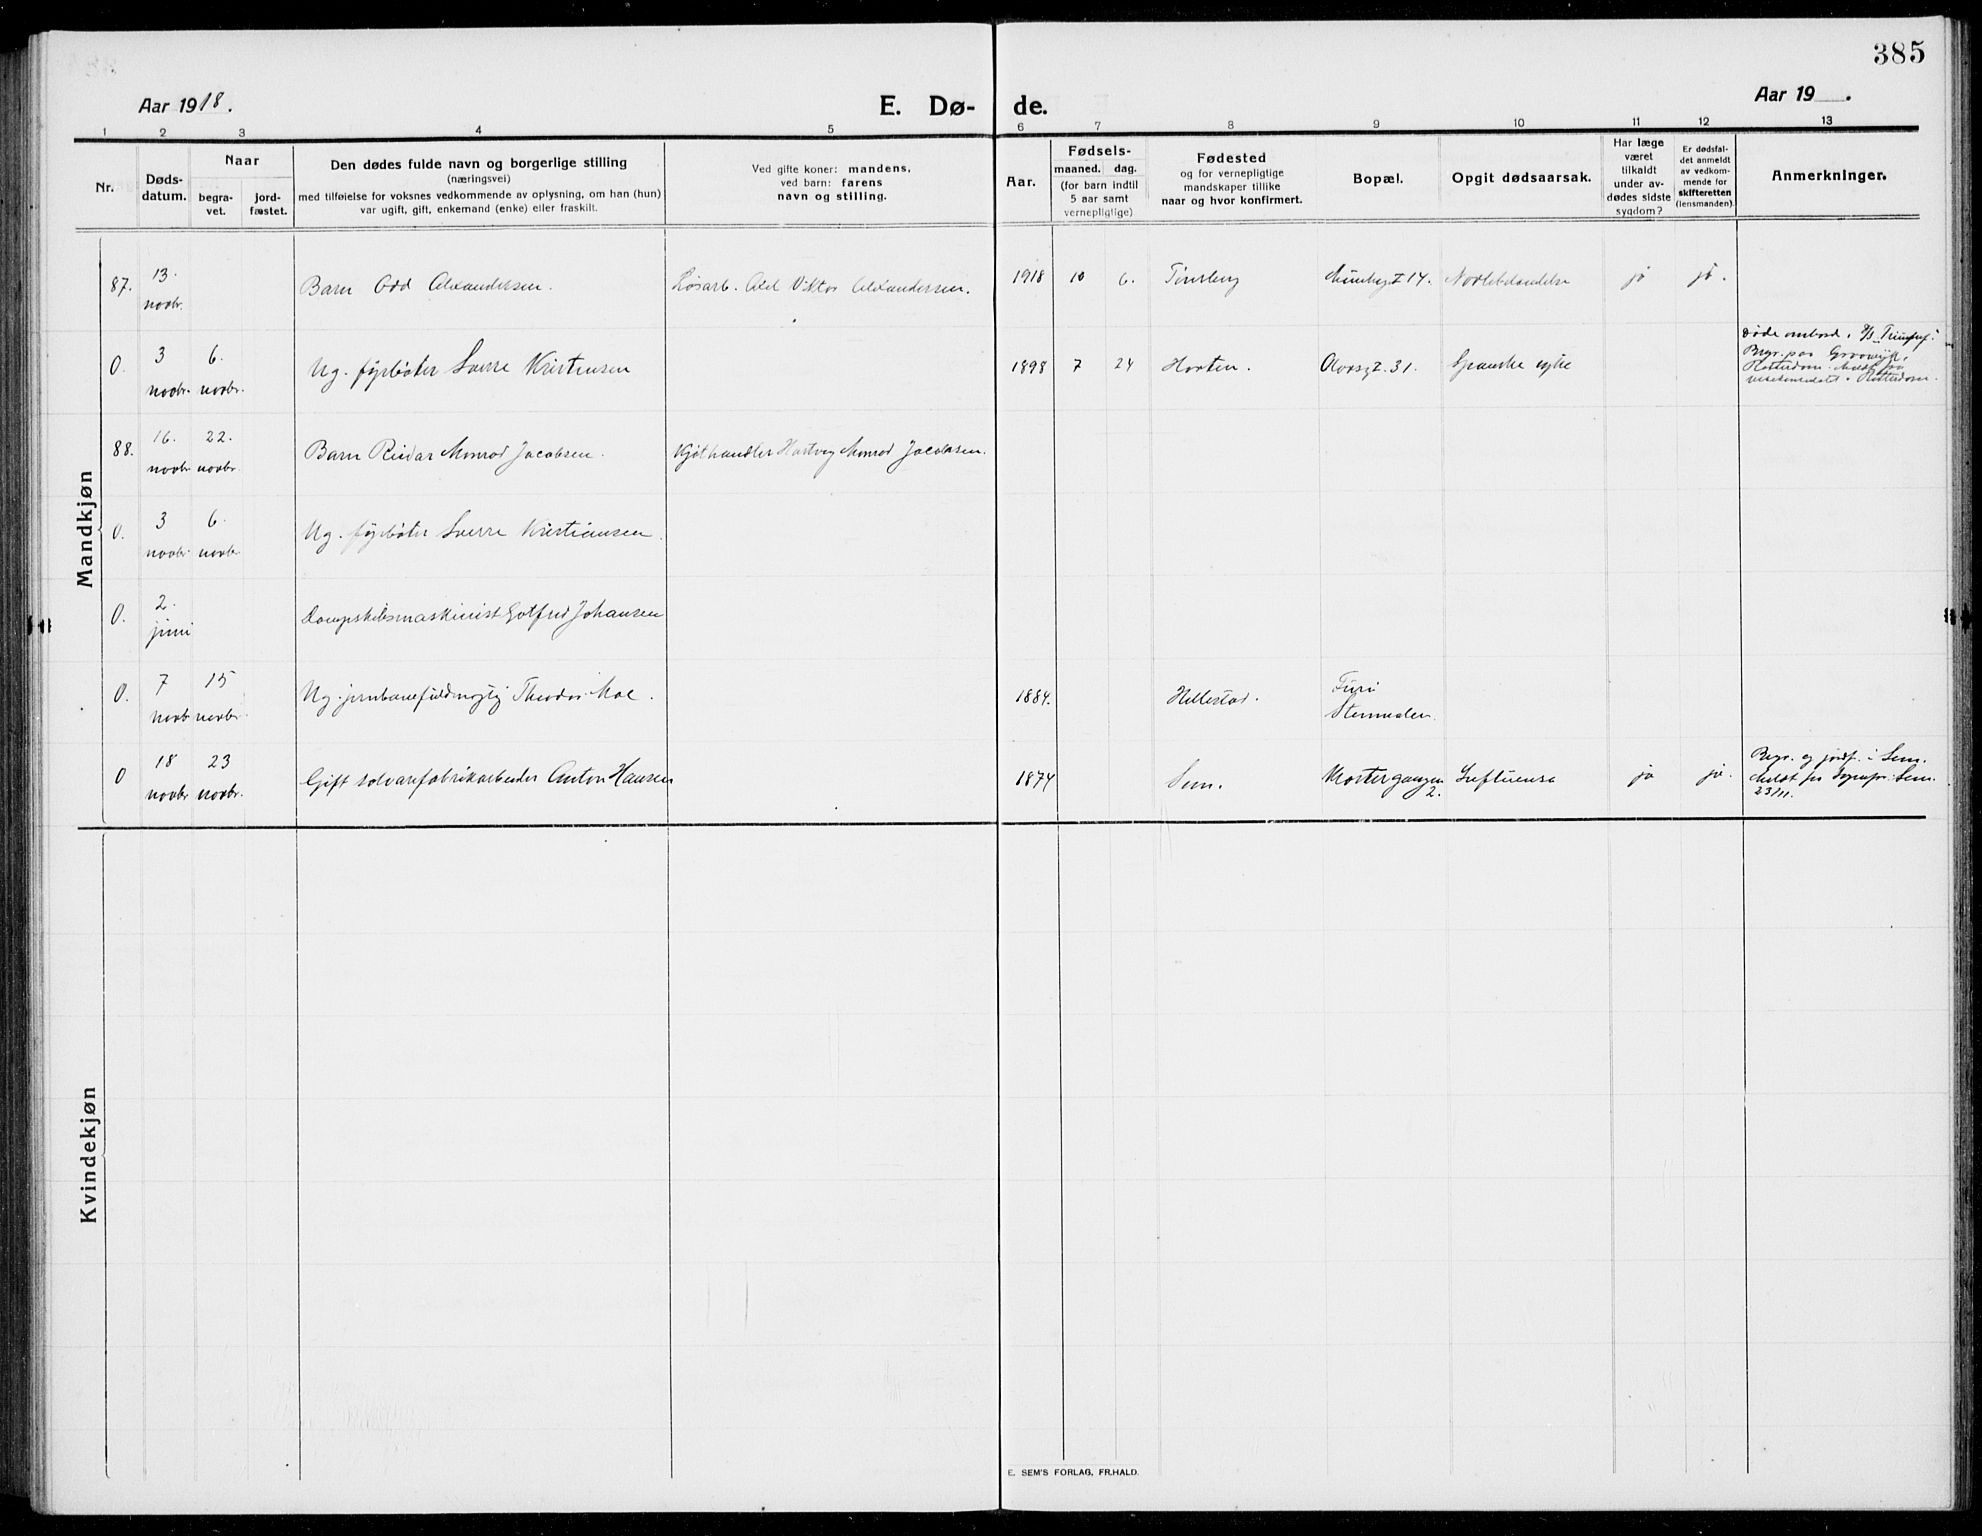 385
Aar 1918.
E. Dø-
de.
Aar 19 .
1 2 3 4 5 6 7 8 9 10 11 12 13
Nr.
Døds-
datum.
Naar
begra-
vet.
jord-
fæstet.
Den dødes fulde navn og borgerlige stilling
(næringsvei)
med tilføielse for voksnes vedkommende av oplysning, om han (hun)
var ugift, gift, enkemand (enke) eller fraskilt.
Ved gifte koner: mandens,
ved barn: farens
navn og stilling.
Aar.
Fødsels-
maaned. dag.
(for barn indtil
5 aar samt
vernepligtige)
Fødested
og for vernepligtige
mandskaper tillike
naar og hvor konfirmert.
Bopæl.
Opgit dødsaarsak.
Har læge
været
tilkaldt
under av-
dødes sidste
sygdom?
Er dødsfal-
det anmeldt
av vedkom-
mende for
skifteretten
(lensmanden).
Anmerkninger.
Mandkjøn
87. 13. novbr. Barn Odd Alexandersen. Løsarb. Viktor Alexandersen. 1918 10 6. Tønsberg 14. ja ja.
0. 3 novbr. 6. novbr. Ug. fyrbøter Sverre Kristiansen 1898 7 24 Horten. 31. Spanske syke
Døde ombord i
Rotterdam.
Rotterdam.
88. 16. novbr. 22. novbr. Barn Reidar Monrad Jacobsen. Kjøthandler Hartvig Monrad Jacobsen.
0. 3 novbr. 6. novbr. Ug. fyrbøter Sverre Kristiansen.
0. 2. juni Dampskibsmaskinist Gotfred Johansen
0. 7 novb. 15 novbr. Ug. jernbanefuldmegtig Theodor Moe. 1884. Hillestad.
0 18 novbr. 23 novbr. Gift Anton Hansen 1874 Sem. 2. Influensa ja ja.
Begr. og jordf. i Sem.
Meldt fra Sognepr. i Sem
23/11.
Kvindekjøn
E. SEM'S FORLAG, FR.HALD.